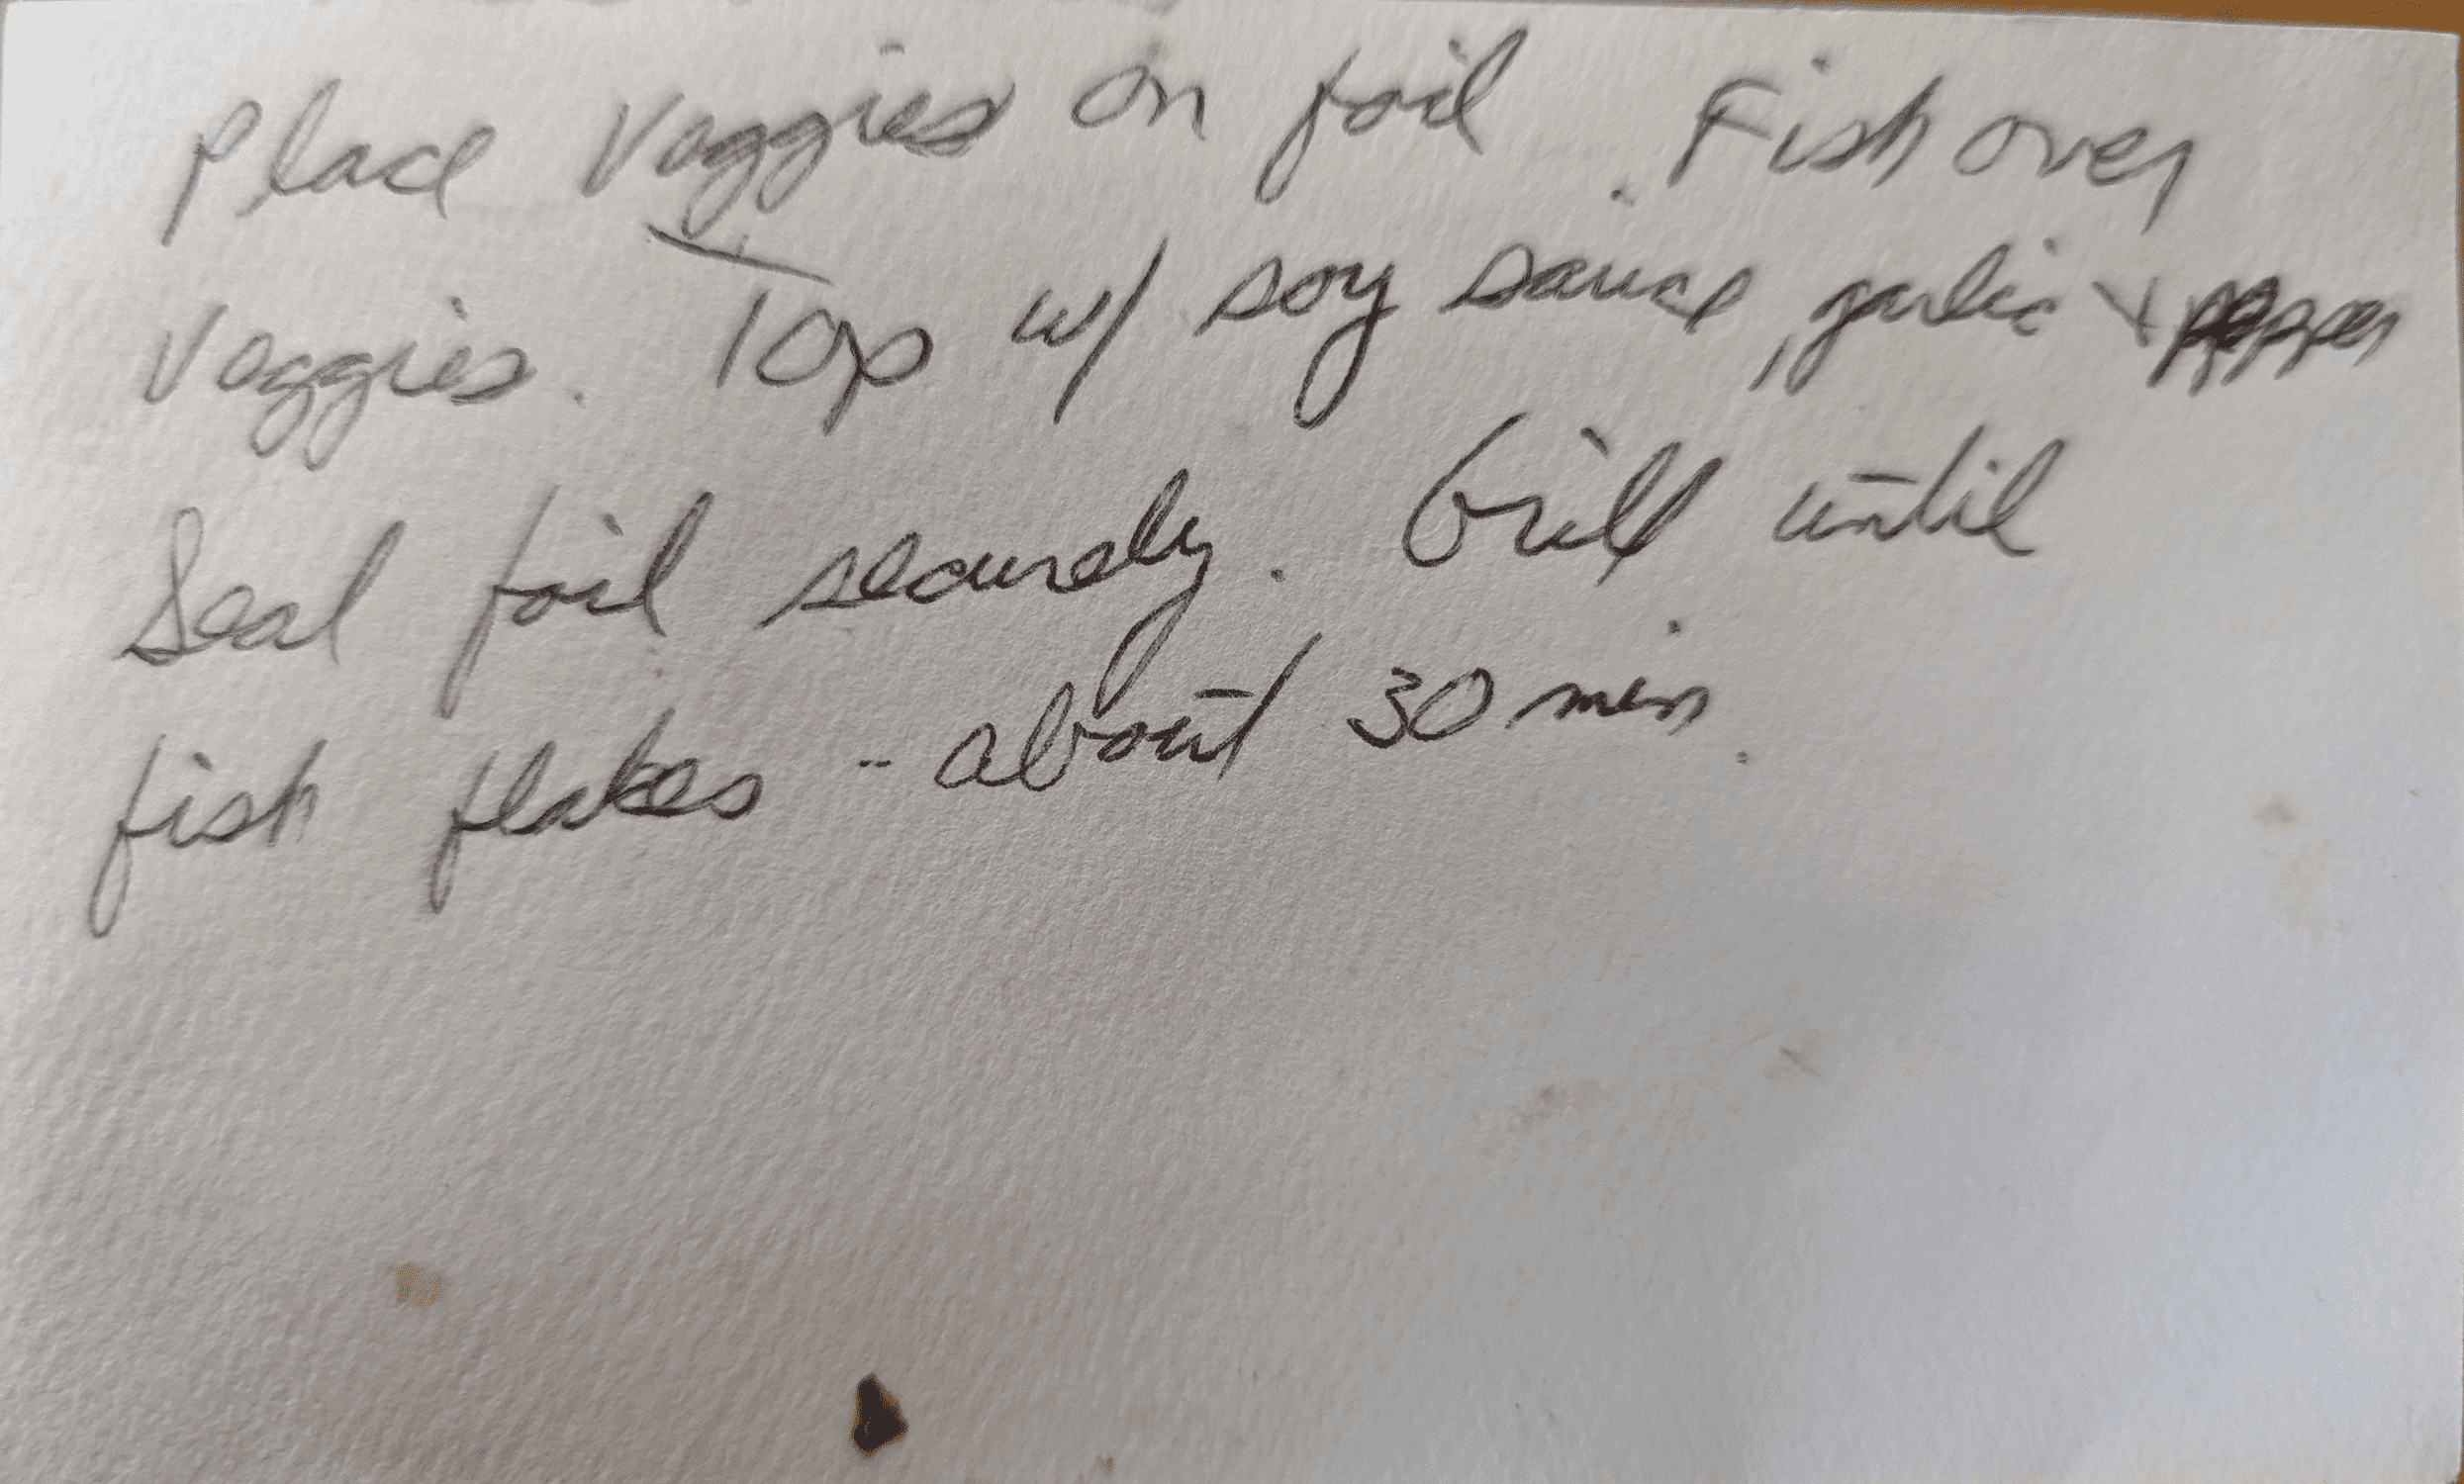 Place Veggies on foil. Fish over
Veggies. Top w/ soy sauce, garlic & pepper
Seal foil securely. Grill until
fish flakes -- about 30 min.